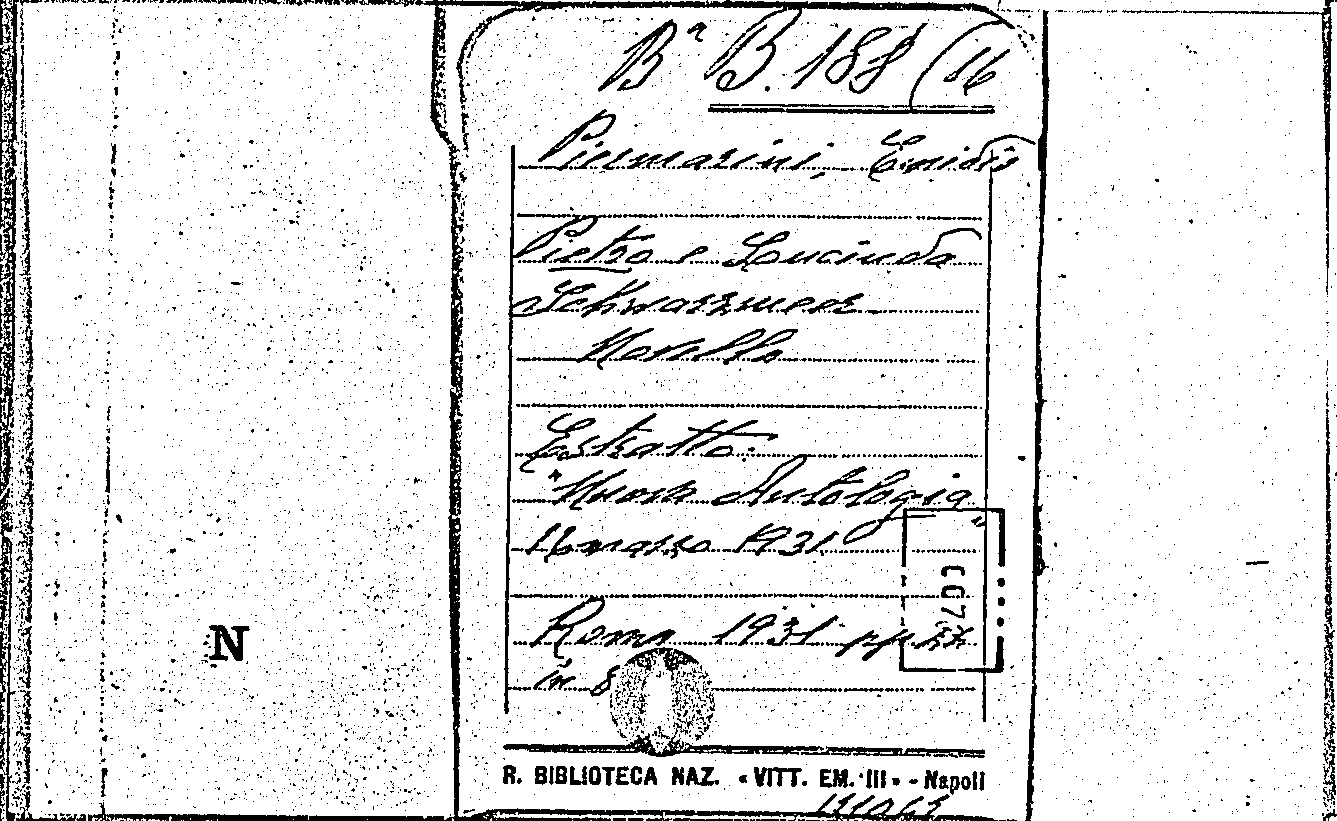 Bª B. 188 (16
Piermarini, Emidio
Pietro e Lucinda
Schwarzmeer
Novella
Estratto:
"Nuova Antologia"
16 marzo 1931
Roma 1931 pp.
in 8
007
N
R. BIBLIOTECA NAZ. « VITT. EM. III » - Napoli